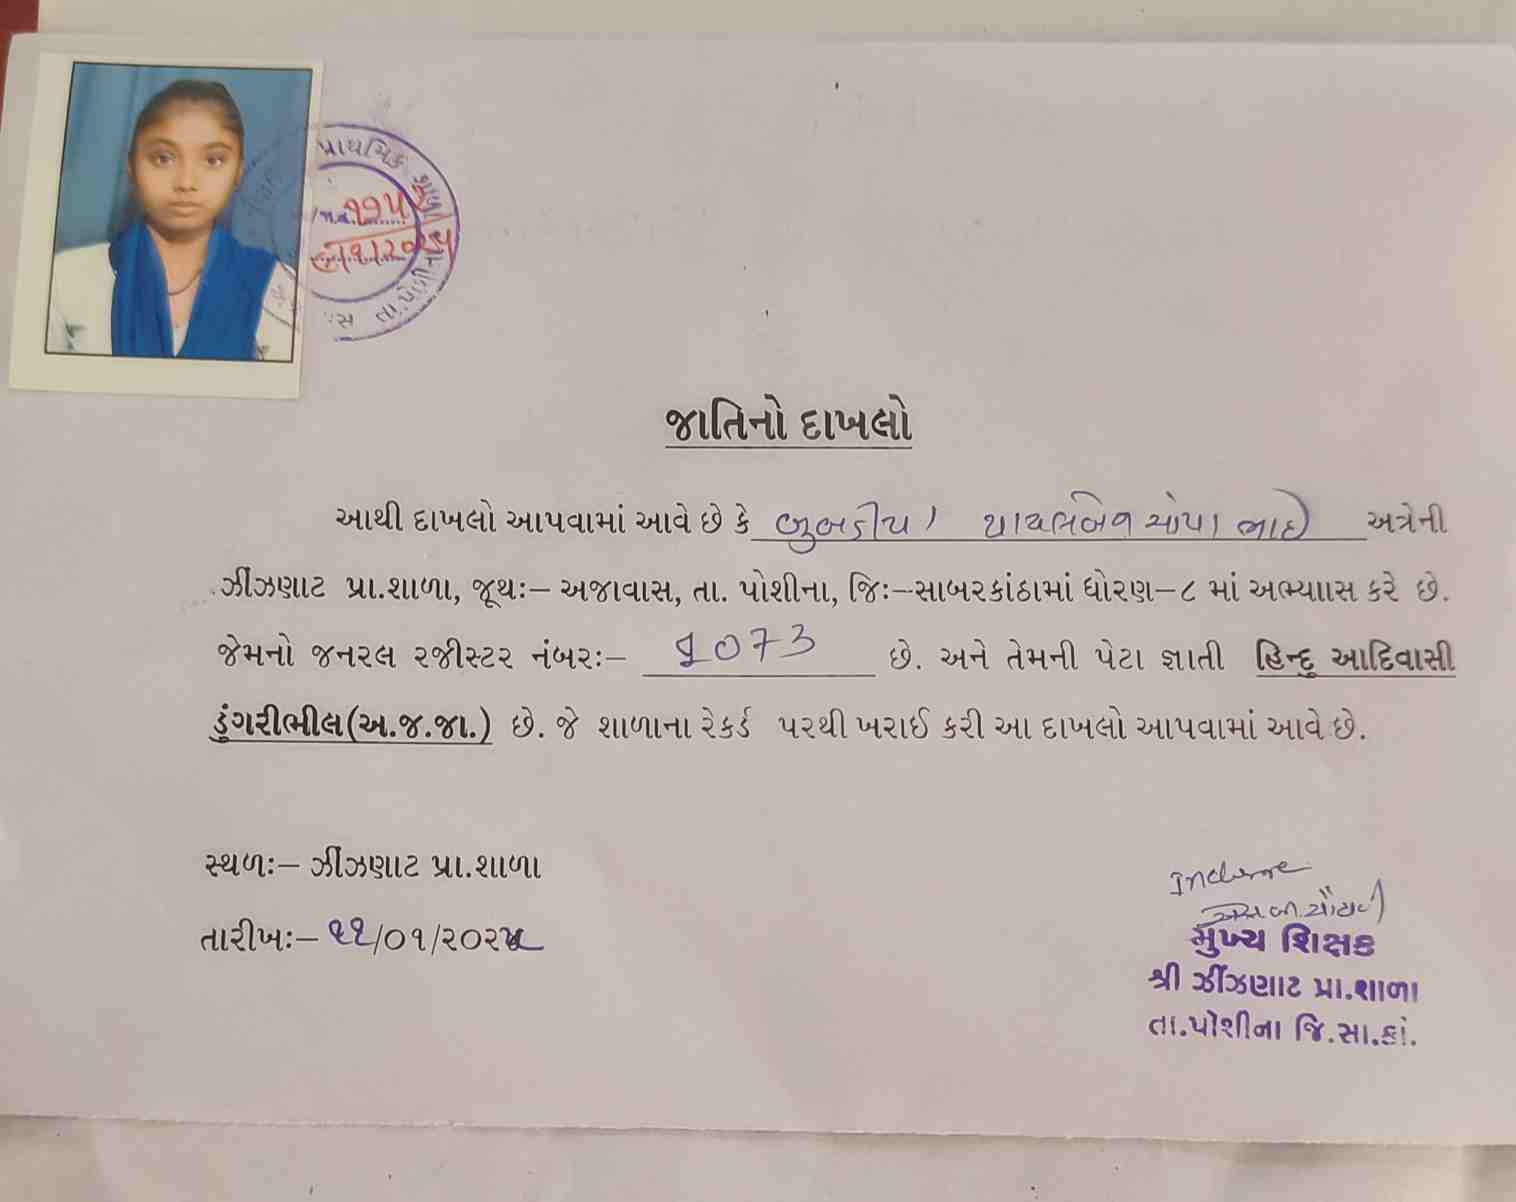 પ્રાથમિક શાળા
તા.પોશીના
૧૧૫
જાતિનો દાખલો
આથી દાખલો આપવામાં આવે છે કે બુબડીયા પાયલબેન ચોપાભાઈ અત્રેની
ઝીંઝણાટ પ્રા.શાળા, જૂથઃ– અજાવાસ, તા. પોશીના, જિઃ–સાબરકાંઠામાં ધોરણ–૮ માં અભ્યાાસ કરે છે.
જેમનો જનરલ રજીસ્ટર નંબરઃ– 1073 છે. અને તેમની પેટા જ્ઞાતી હિન્દુ આદિવાસી
ડુંગરીભીલ(અ.જ.જા.) છે. જે શાળાના રેકર્ડ પરથી ખરાઈ કરી આ દાખલો આપવામાં આવે છે.
સ્થળઃ– ઝીંઝણાટ પ્રા.શાળા
તારીખઃ– ૧૧/૦૧/૨૦૨૫
મુખ્ય શિક્ષક
શ્રી ઝીંઝણાટ પ્રા.શાળા
તા.પોશીના જિ.સા.કાં.